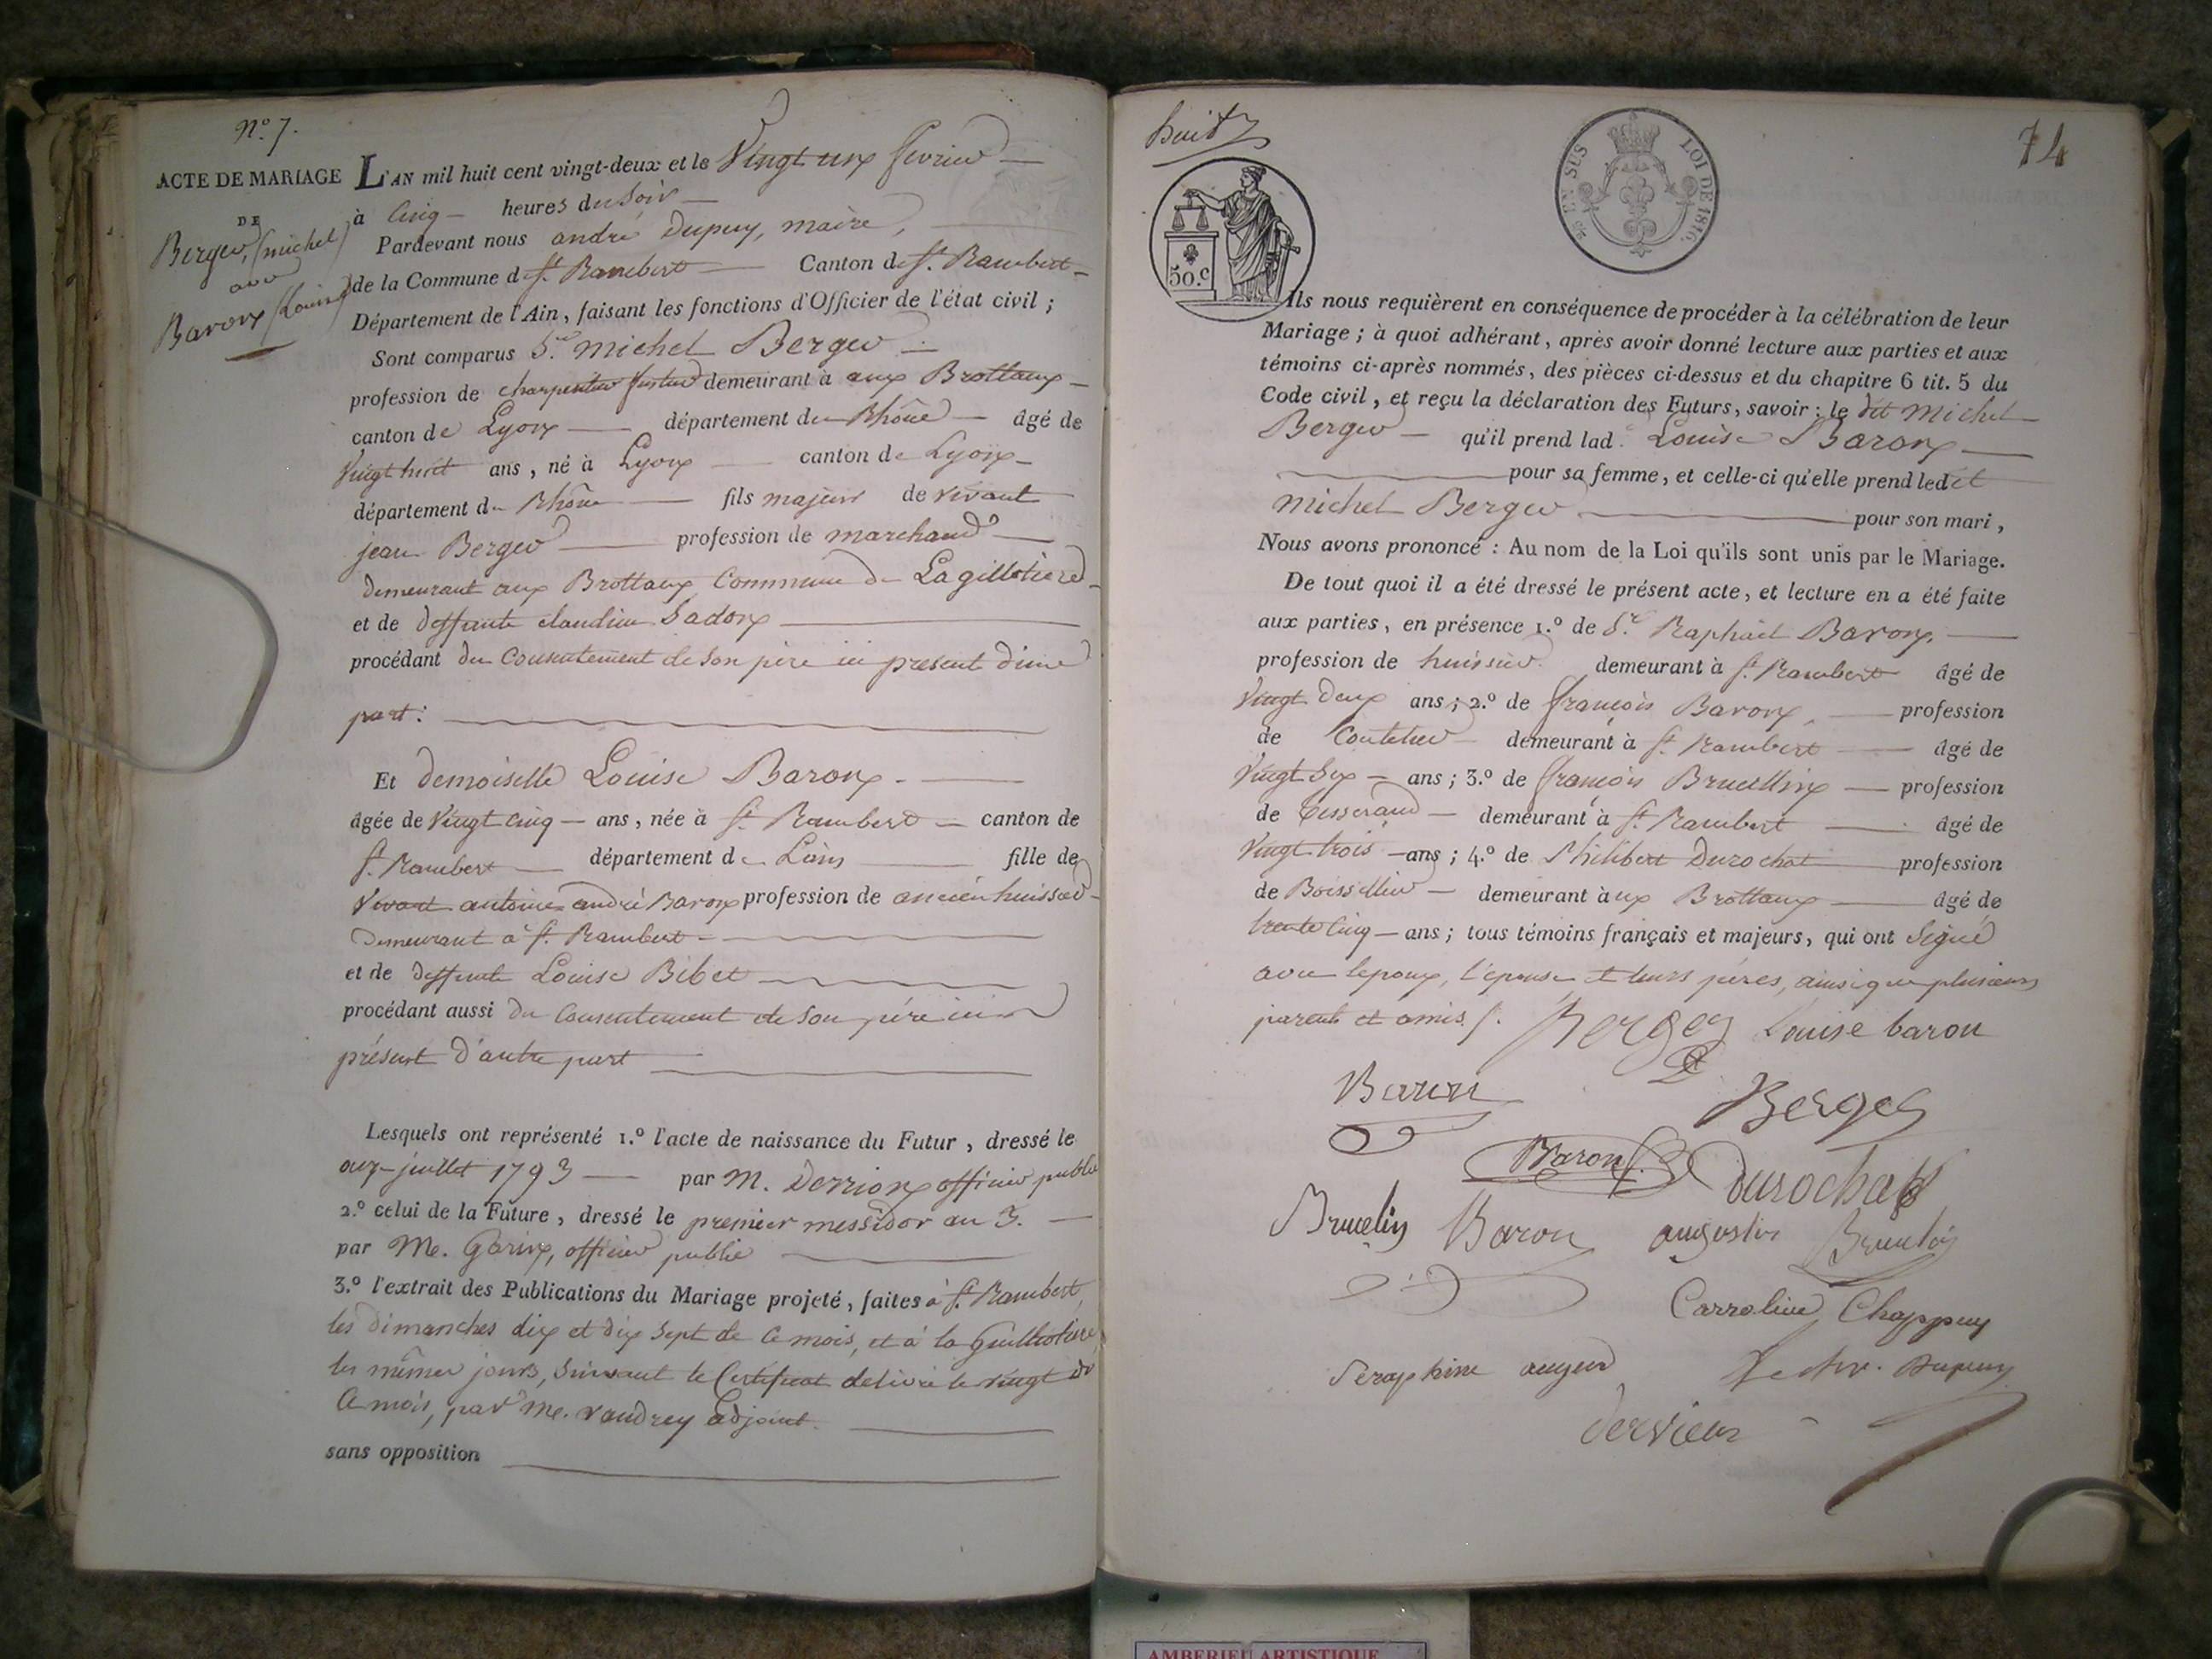 N.º 7.
ACTE DE MARIAGE
DE
Berger, (michel)
avec
Baron (Louise)
L'AN mil huit cent vingt-deux et le Vingt un fevrier
à Cinq heures du Soir
Pardevant nous andré Dupuy, maire,
de la Commune de St. Rambert Canton de St. Rambert
Département de l'Ain, faisant les fonctions d'Officier de l'état civil ;
Sont comparus Sr. michel Berger
profession de charpentier demeurant à aux Brottaux
canton de Lyon département du Rhône âgé de
Vingt huit ans, né à Lyon canton de Lyon
département du Rhône fils majeur de vivant
jean Berger profession de marchand
demeurant aux Brottaux Commune de La gillotiere
et de deffunte claudine Sadon
procédant du Consentement de son père ici present d'une
part :
Et demoiselle Louise Baron
âgée de Vingt cinq ans, née à St. Rambert canton de
St. Rambert département de Lain fille de
Vivant antoine andré Baron profession de ancien huissier
Demeurant à St. Rambert
et de deffunte Louise Bibet
procédant aussi du Consentement de son père ici
présent d'autre part
Lesquels ont représenté 1.º l'acte de naissance du Futur, dressé le
onze juillet 1793 par M. Derrion officier public
2.º celui de la Future, dressé le premier messidor an 3.
par Me. Garin, officier public
3.º l'extrait des Publications du Mariage projeté, faites à St. Rambert,
les dimanches dix et dix sept de ce mois, et à la Guillotiere
les mêmes jours, suivant le Certificat délivré le vingt de
Ce mois, par Me. vaudrey adjoint.
sans opposition
huit
50.C
EN SUS
LOI DE 1816.
74
Ils nous requièrent en conséquence de procéder à la célébration de leur
Mariage ; à quoi adhérant, après avoir donné lecture aux parties et aux
témoins ci-après nommés, des pièces ci-dessus et du chapitre 6 tit. 5 du
Code civil, et reçu la déclaration des Futurs, savoir : le dit Michel
Berger qu'il prend lad. Louise Baron
pour sa femme, et celle-ci qu'elle prend ledit
michel Berger pour son mari,
Nous avons prononcé : Au nom de la Loi qu'ils sont unis par le Mariage.
De tout quoi il a été dressé le présent acte, et lecture en a été faite
aux parties, en présence 1.º de Sr. Raphaël Baron,
profession de huissier demeurant à St. Rambert âgé de
Vingt deux ans ; 2.º de françois Baron, profession
de Coutelier demeurant à St. Rambert âgé de
Vingt Six ans ; 3.º de françois Brucellin profession
de Tisserand demeurant à St. Rambert âgé de
Vingt trois ans ; 4.º de Philibert Durochat profession
de Boissellier demeurant à ux Brottaux âgé de
trente Cinq ans ; tous témoins français et majeurs, qui ont Signé
avec lepoux, l'épouse et leurs pères, ainsi que plusieurs
parents et amis.
Berger Louise baron
Baron Berger
Baron Durochat
Brucelin Baron augustin
Carroline Chappuy
Seraphine auger Dupuy
dervieu
AMBERIEU ARTISTIQUE